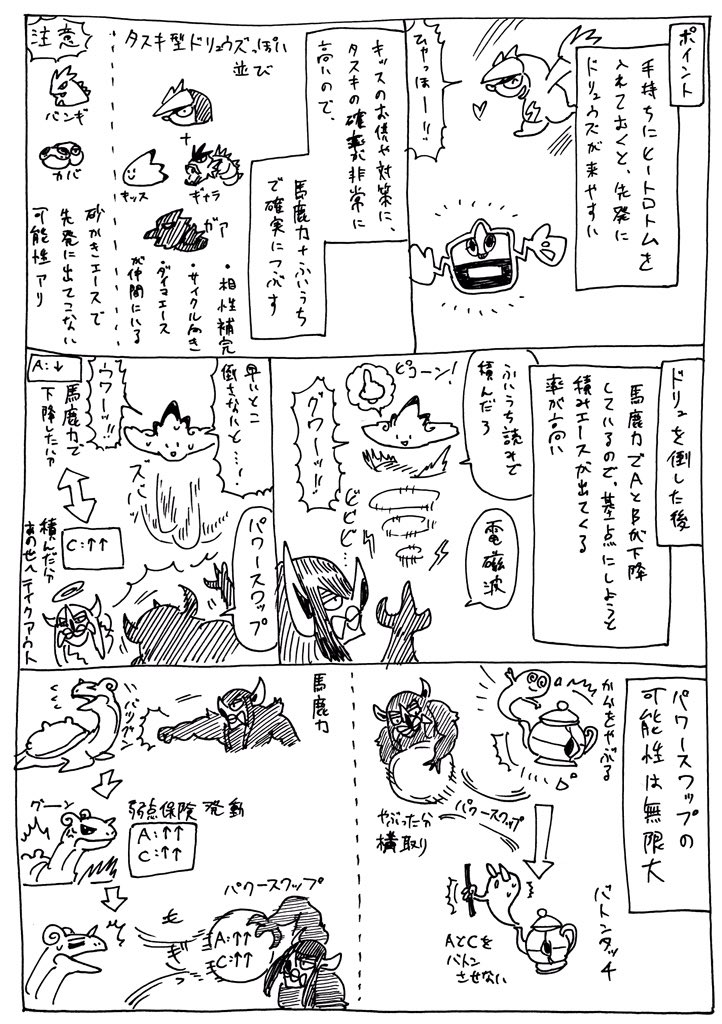 ポイント
手持ちにヒートロトムを
入れておくと、先発に
ドリュウズが来やすい
ひゃっほーー!!
キッスのお供や対策に、
タスキの確率が非常に
高いので、
馬鹿力+ふいうち
で確実につぶす
タスキ型ドリュウズっぽい
並び
+
キッス
ギャラ
ガア
・相性補完
・サイクル向き
・ダイマエース
が仲間にいる
注意
バンギ
カバ
砂かきエースで
先発に出てこない
可能性アリ
ドリュを倒した後
馬鹿力でAとBが下降
しているので、基点にしようと
積みエースが出てくる
率が高い
ふいうち読みで
積んだろ
電磁波
ピコーン!
グワーッ!!
どどど…
早いとこ
倒さないと…!
ズバ
ウワーッ!!
パワースワップ
A:↓
馬鹿力で
下降した分
C:↑↑
積んだ分
あの世へテイクアウト
パワースワップの
可能性は無限大
からをやぶる
パワースワップ
やぶった分
横取り
バトンタッチ
AとCを
バトン
させない
馬鹿力
バツグン
グーン
弱点保険 発動
A:↑↑
C:↑↑
パワースワップ
もぎ
A:↑↑
C:↑↑